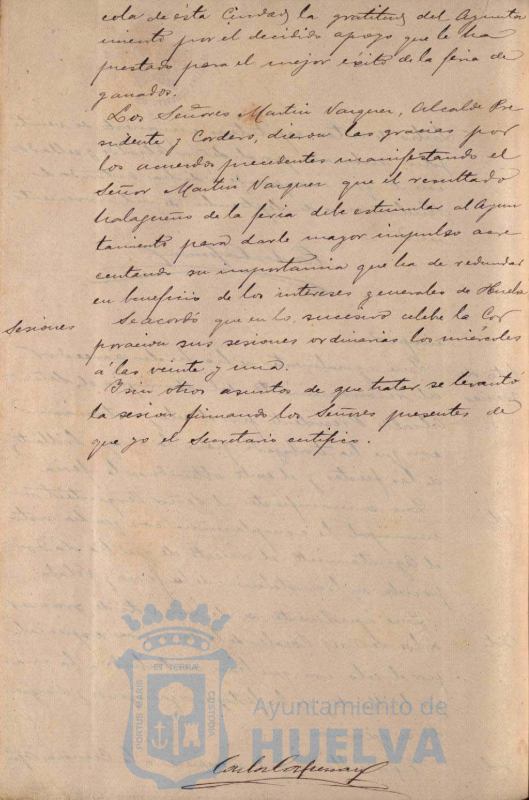 cola de ésta Ciudad, la gratitud del Ayunta
miento por el decidido apoyo que le ha
prestado para el mejor éxito de la feria de
ganados.
Los Señores Martin Vazquez, Alcalde Pre
sidente y Cordero, dieron las gracias por
los acuerdos precedentes manifestando el
Señor Martin Vazquez que el resultado
halagueño de la feria debe estimular al Ayun
tamiento para darle mayor impulso acre
centando su importancia que ha de redundar
en beneficio de los intereses generales de Huelva
Sesiones
Se acordó que en lo sucesivo celebre la Cor
poracion sus sesiones ordinarias los miércoles
á las veinte y una.
Y sin otros asuntos de que tratar se levantó
la sesion firmando los Señores presentes de
que yo el Secretario certifico.
ET TERRÆ
PORTUS MARIS
CUSTODIA
Ayuntamiento de
HUELVA